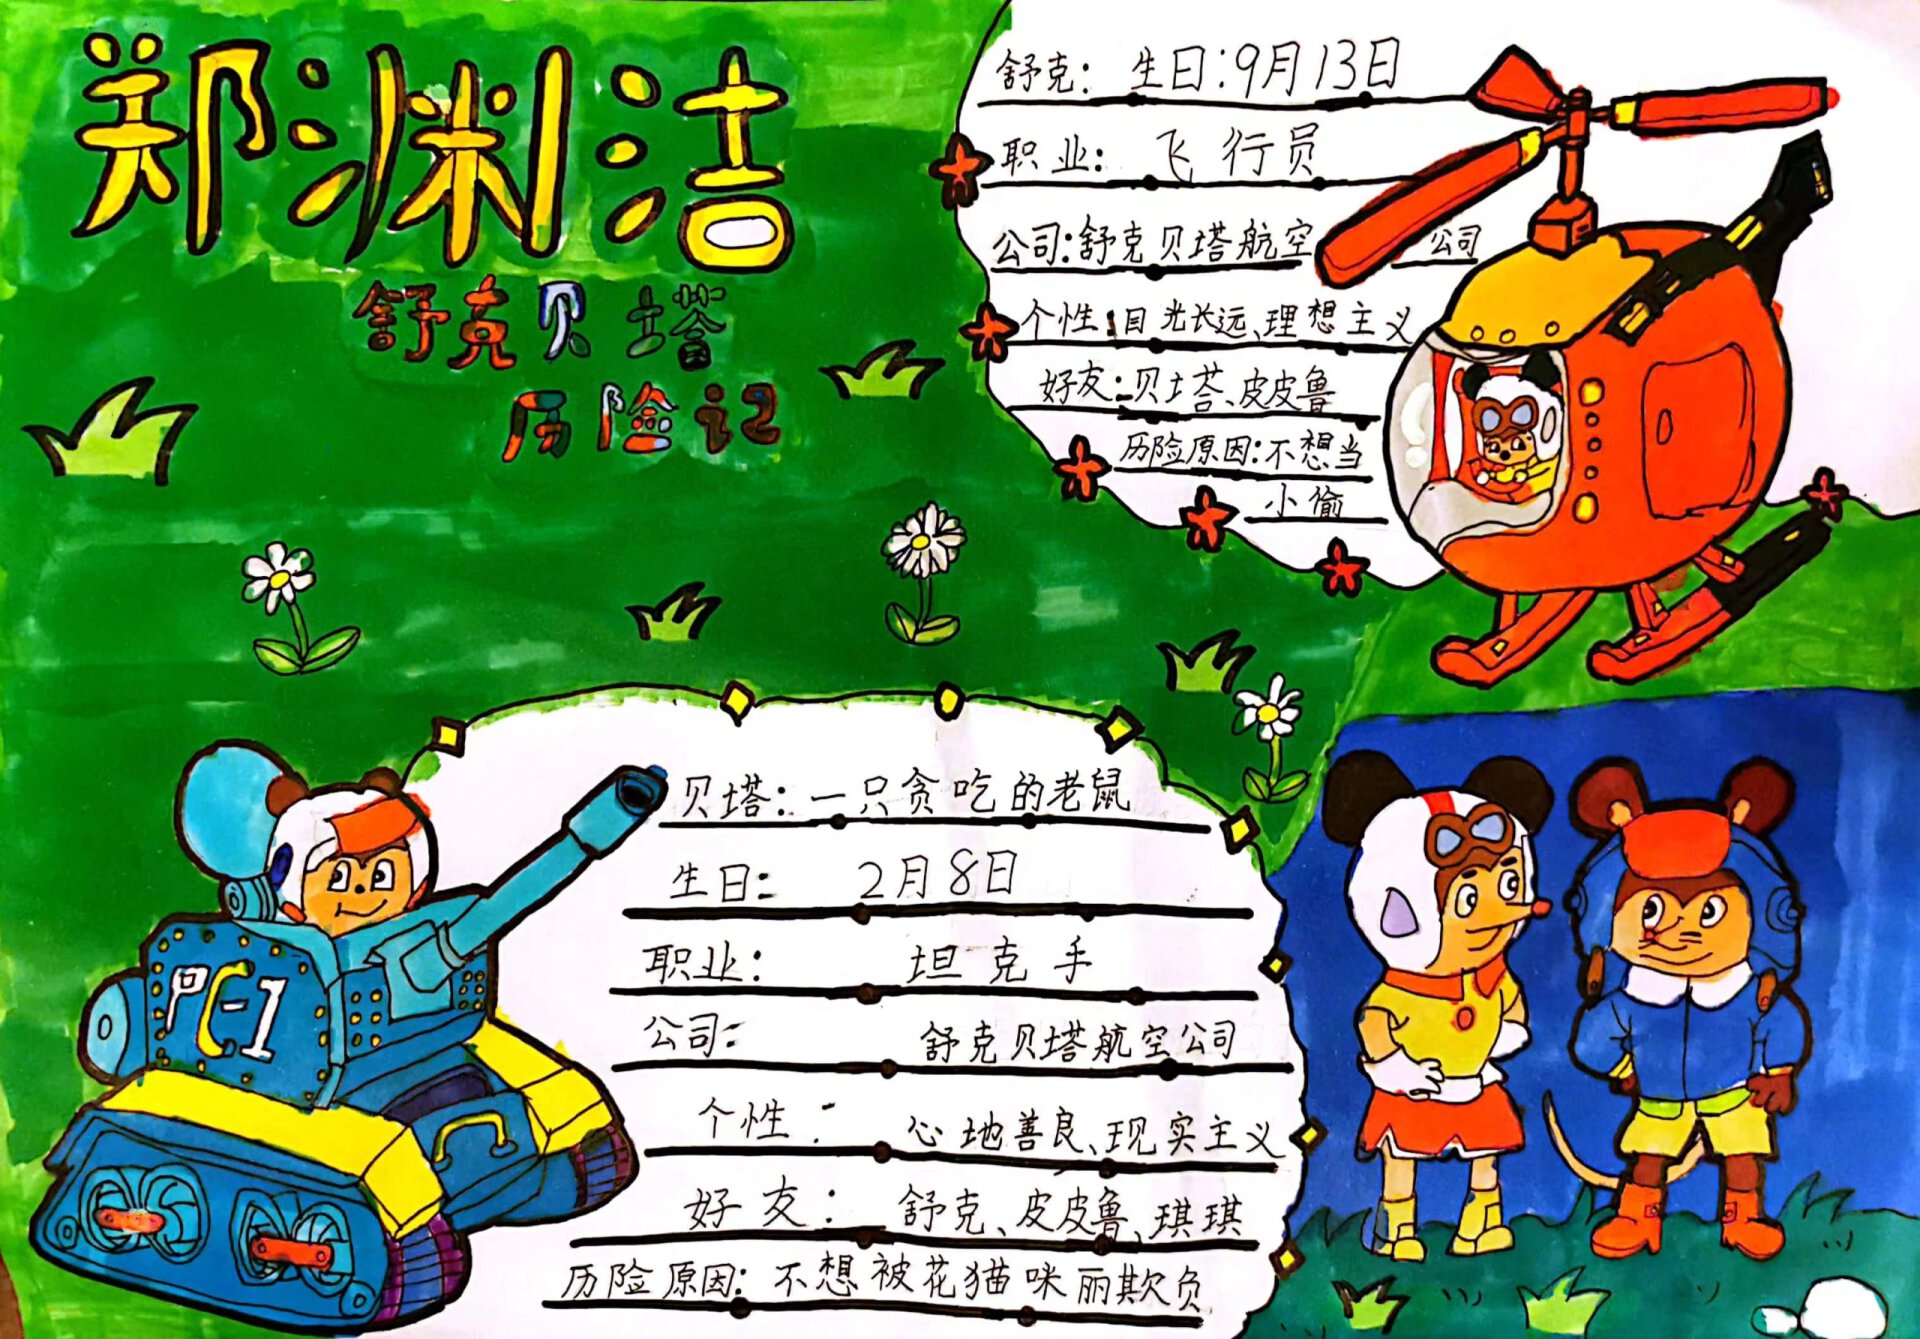 郑渊洁
舒克贝塔
历险记
舒克：生日：9月13日
职业：飞行员
公司：舒克贝塔航空公司
个性：目光长远、理想主义
好友：贝塔、皮皮鲁
历险原因：不想当
小偷
贝塔：一只贪吃的老鼠
生日：2月8日
职业：坦克手
公司：舒克贝塔航空公司
个性：心地善良、现实主义
好友：舒克、皮皮鲁、琪琪
历险原因：不想被花猫咪丽欺负
PC-1